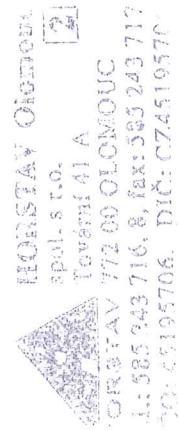 HORSTAV Olomouc
spol. s r.o.
2
Tovární 41 A
772 00 OLOMOUC
HORSTAV
tel.: 585 243 716, 8, fax: 585 243 717
IČO: 45195706, DIČ: CZ45195706